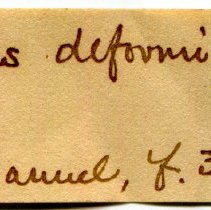 s deformi
anuel, f. 3